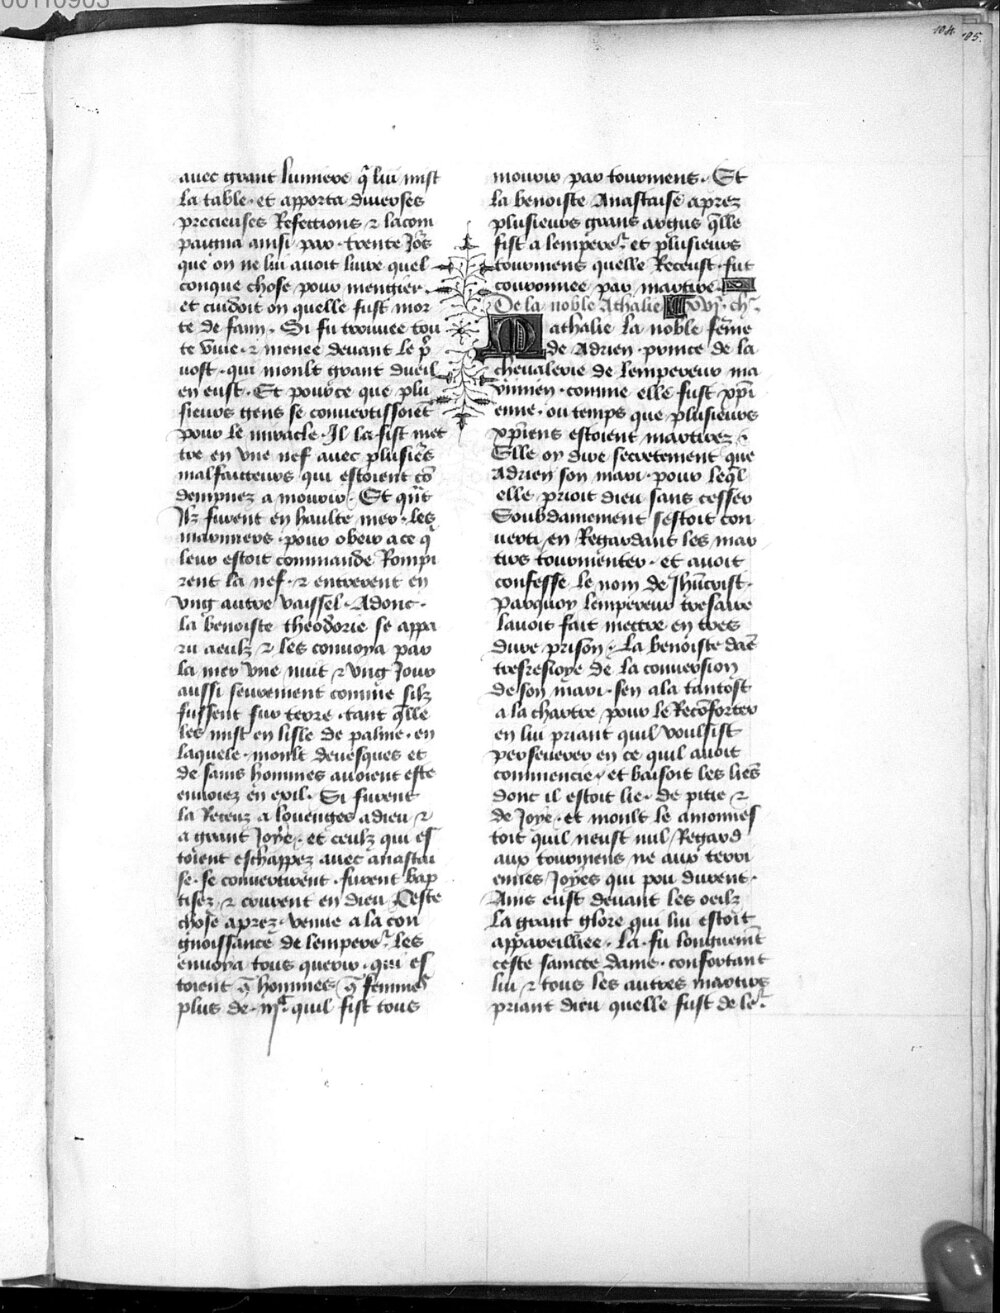 00110903
104 105.
auec grant lumiere q̃ lui mist
la table · et apporta diuerses
precieuses Refections ⁊ lacom
paigna ainsi par · trente Jõs
que on ne lui auoit liure quel
conque chose pour mengier ·
et cuidoit on quelle fust mor
te de faim · Si fu trouuee tou
te viue · ⁊ menee deuant le p̃
uost · qui moult grant dueil
en eust · Et pource que plu
sieurs gens se conuertissoiẽt
pour le miracle · Il la fist met
tre en vne nef auec plusieʳs
malfaicteurs qui estoient cõ
dempnez a mourir · Et quãt
Ilz furent en haulte mer · les
maronniers · pour obeir a ce q̃
leur estoit commande Rompi
rent la nef · ⁊ entrerent en
vng autre vaissel · Adonc ·
la benoiste theodorie se appa
ru a eulz ⁊ les conuoya par
la mer vne nuit ⁊ vng Jour
aussi seurement comme silz
fussent sur terre · tant q̃lle
les mist en lisle de palme · en
laquele · moult deuesques et
de sains hommes auoient este
enuoiez en exil · Si furent
la Receuz a louenges a dieu ⁊
a grant Joye · et ceulz qui es
toient eschappez auec anastai
se · se conuertirent · furent bap
tisez ⁊ crourent en dieu Ceste
chose aprez · venue a la con
gnoissance de lempereʳ · les
enuoya tous querir · qui es
toient q̃ hommes q̃ femmes
plus de · ijᶜ · quil fist tous
mourir par tourmens · Et
la benoiste Anastaise aprez
plusieurs grans argus q̃lle
fist a lempereʳ · et plusieurs
tourmens quelle Receust · fut
couronnee par martire ·
De la noble Athalie xvj · chʳ ·
Nathalie la noble fẽme
de Adrien · prince de la
cheualerie de lempereur ma
ximien · comme elle fust xp̃i
enne · ou temps que plusieurs
xp̃iens estoient martirez ·
Elle oy dire secretement que
Adrien son mari · pour leq̃l
elle prioit dieu sans cesser
Soubdainement sestoit con
uerti en Regardant les mar
tirs tourmenter · et auoit
confesse le nom de Jhũcrist ·
Parquoy lempereur tresaire
lauoit fait mectre en tres
dure prison · La benoiste dãe
tresresioye de la conuersion
de son mari · sen ala tantost
a la chartre pour le Recõforter
en lui priant quil voulsist
perseuerer en ce quil auoit
commencie · et baisoit les liẽs
dont il estoit lie · de pitie ⁊
de Joye · et moult le amonnes
toit quil neust nul Regard
aux tourmens ne aux terri
ennes Joyes qui pou durent ·
Ains eust deuant les oeilz
la grant glore qui lui estoit
appareilliee · La fu longuemẽt
ceste saincte dame · confortant
lui ⁊ tous les autres martirs
priant dieu quelle fust de leʳ